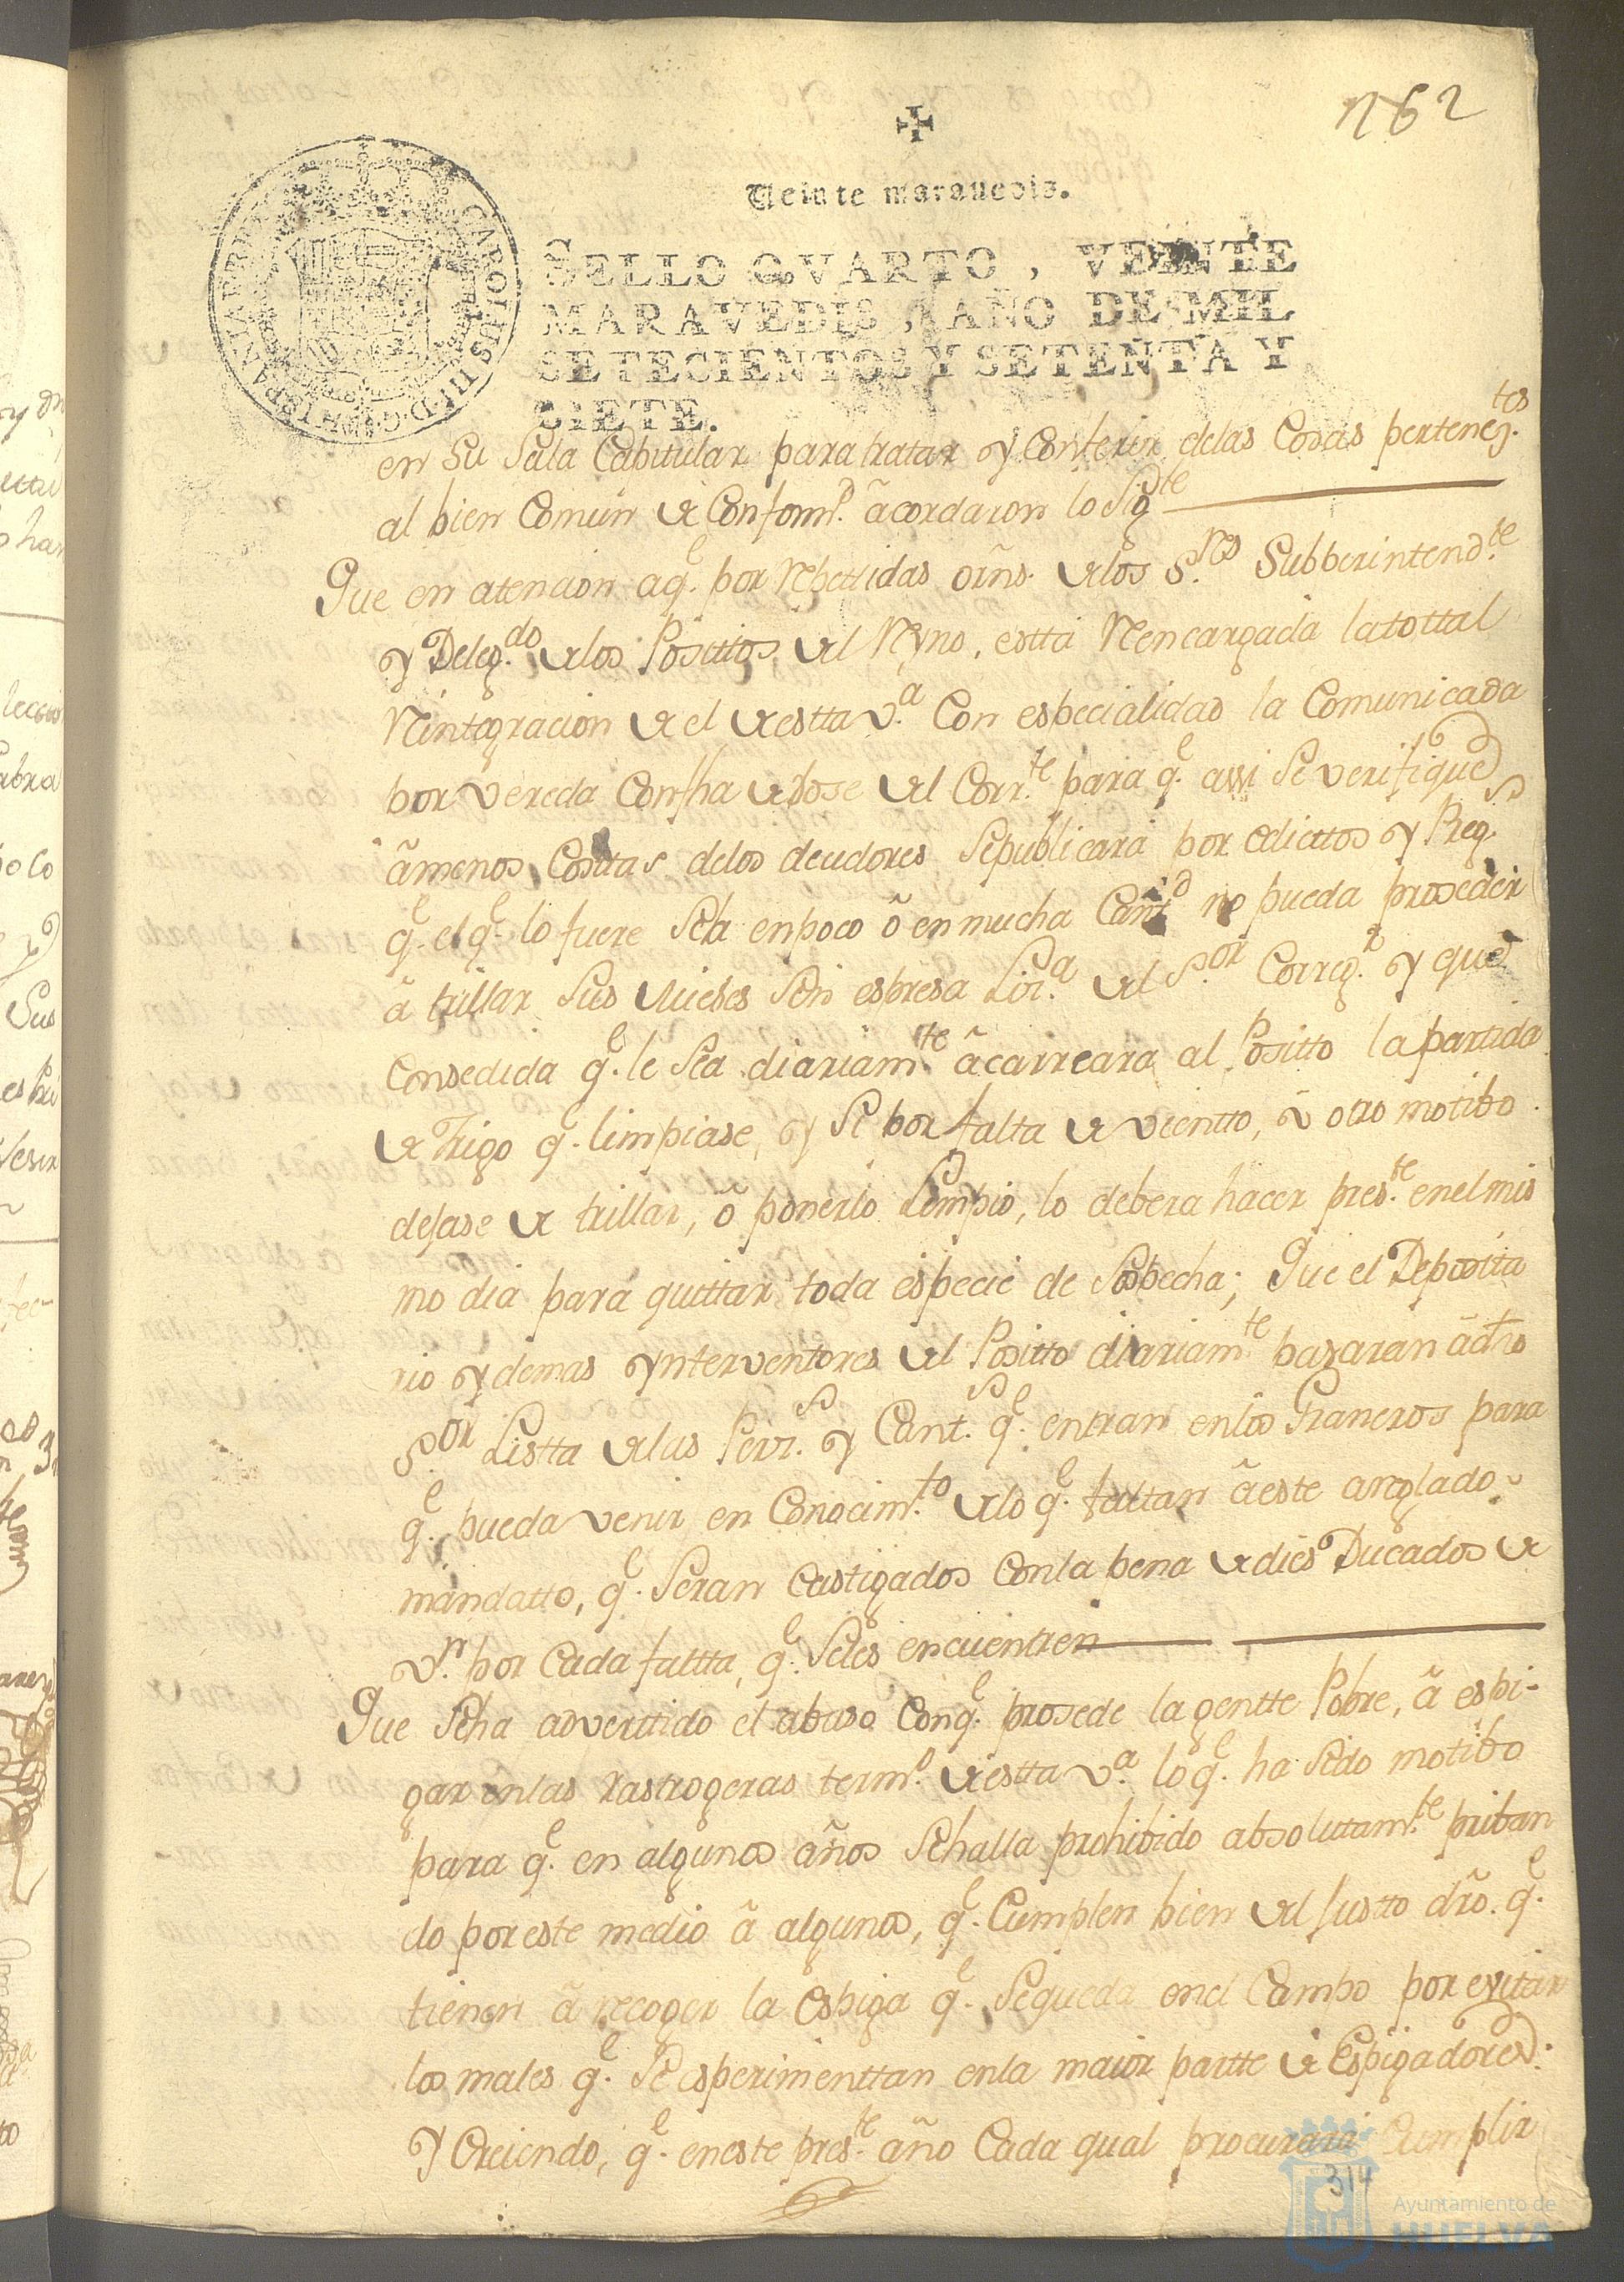 162
Veinte maravedis.
SELLO QVARTO, VEINTE
MARAVEDIS, AÑO DE MIL
SETECIENTOS Y SETENTA Y
SIETE.
CAROLUS III D.G. HISPANIAR
en Su Sala Capitular para tratar y Conferir delas Cosas pertenez.tes
al bien Comun de Conform.d ãcordaron lo Sig.te
Que en atencion aq.e por Repettidas orñs. delos S.res Subperintend.te
y Deleg.do delos Posittos del Reyno, estta Rencargada latottal
Reintegracion de el de estta v.a Con especialidad la Comunicada
por vereda Confha de dose del Corr.te para q.e assi Se verifique
ãmenos Costtas delos deudores Sepublicara por edicttos y Preg.s
q.e elq.e lo fuere Sea enpoco õ en mucha Cant.d no pueda proseder
ã trillar Sus Mieses Sin espresa Liz.a del S.or Correg.r y que
Consedida q.e le Sea diariam.te ãcarreara al Positto la partida
de Trigo q.e limpiase, y Si por falta de vientto, ũ otro motibo
dejase de trillar, õ ponerlo Limpio, lo debera hacer pres.te enel mis
mo dia para quittar toda especie de Sospecha; Que el Deposita
rio y demas ynterventores del Positto diariam.te pazaran ã dho
S.or Listta delas Pers.s y Cant.s q.e entran enlos Graneros para
q.e pueda venir en Conocim.to delo q.e faltan ãeste arreglado
mandatto, q.e Seran Castigados Conla pena de dies Ducados de
v.n por Cada faltta, q.e Seles encuentren
Que Seha adverttido el abuso Conq.e prosede la gentte Pobre, ã espi-
gar enlas rastrogeras term.o de estta v.a loq.e ha Sido motibo
para q.e en algunos años Sehalla prohibido absolutam.te priban
do poreste medio ã algunos, q.e Cumplen bien del Justto dro. q.e
tienen ã recoger la Espiga q.e Sequeda enel Campo por evitar
los males q.e Se esperimenttan enla maior partte de Espigadores:
Y Creiendo, q.e eneste pres.te año Cada qual procurara Cumplir
314
Ayuntamiento de
HUELVA